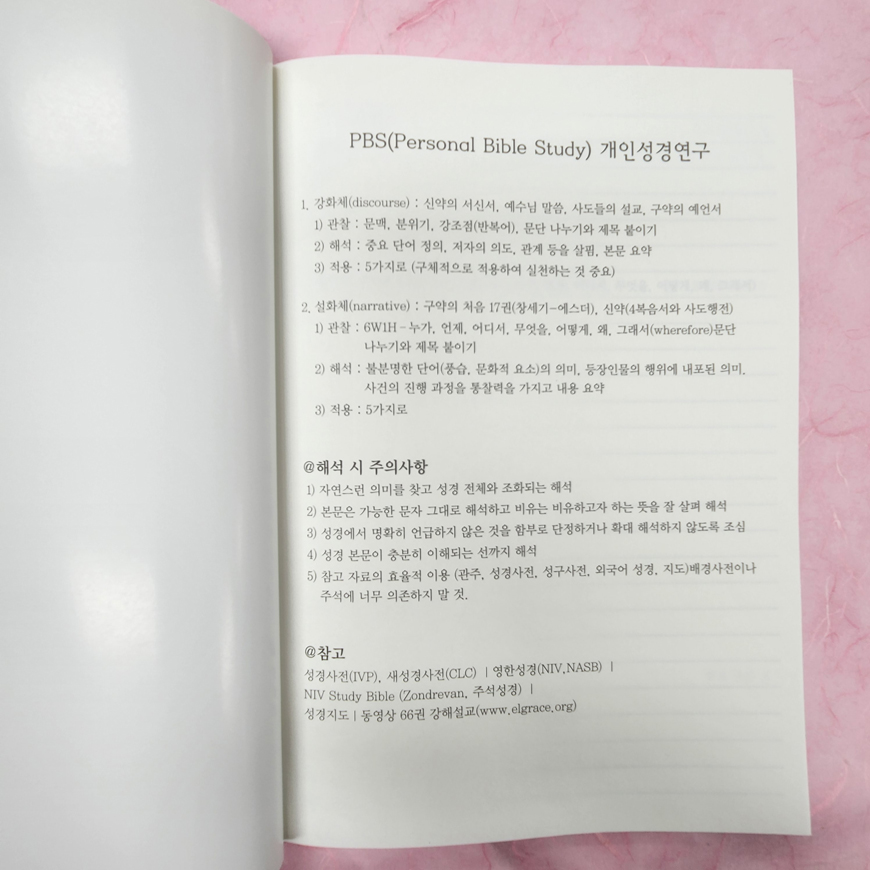 PBS(Personal Bible Study) 개인성경연구
1. 강화체(discourse) : 신약의 서신서, 예수님 말씀, 사도들의 설교, 구약의 예언서
1) 관찰 : 문맥, 분위기, 강조점(반복어), 문단 나누기와 제목 붙이기
2) 해석 : 중요 단어 정의, 저자의 의도, 관계 등을 살핌, 본문 요약
3) 적용 : 5가지로 (구체적으로 적용하여 실천하는 것 중요)
2. 설화체(narrative) : 구약의 처음 17권(창세기-에스더), 신약(4복음서와 사도행전)
1) 관찰 : 6W1H - 누가, 언제, 어디서, 무엇을, 어떻게, 왜, 그래서(wherefore)문단
나누기와 제목 붙이기
2) 해석 : 불분명한 단어(풍습, 문화적 요소)의 의미, 등장인물의 행위에 내포된 의미.
사건의 진행 과정을 통찰력을 가지고 내용 요약
3) 적용 : 5가지로
@해석 시 주의사항
1) 자연스런 의미를 찾고 성경 전체와 조화되는 해석
2) 본문은 가능한 문자 그대로 해석하고 비유는 비유하고자 하는 뜻을 잘 살펴 해석
3) 성경에서 명확히 언급하지 않은 것을 함부로 단정하거나 확대 해석하지 않도록 조심
4) 성경 본문이 충분히 이해되는 선까지 해석
5) 참고 자료의 효율적 이용 (관주, 성경사전, 성구사전, 외국어 성경, 지도)배경사전이나
주석에 너무 의존하지 말 것.
@참고
성경사전(IVP), 새성경사전(CLC) | 영한성경(NIV,NASB) |
NIV Study Bible (Zondrevan, 주석성경) |
성경지도 | 동영상 66권 강해설교(www.elgrace.org)